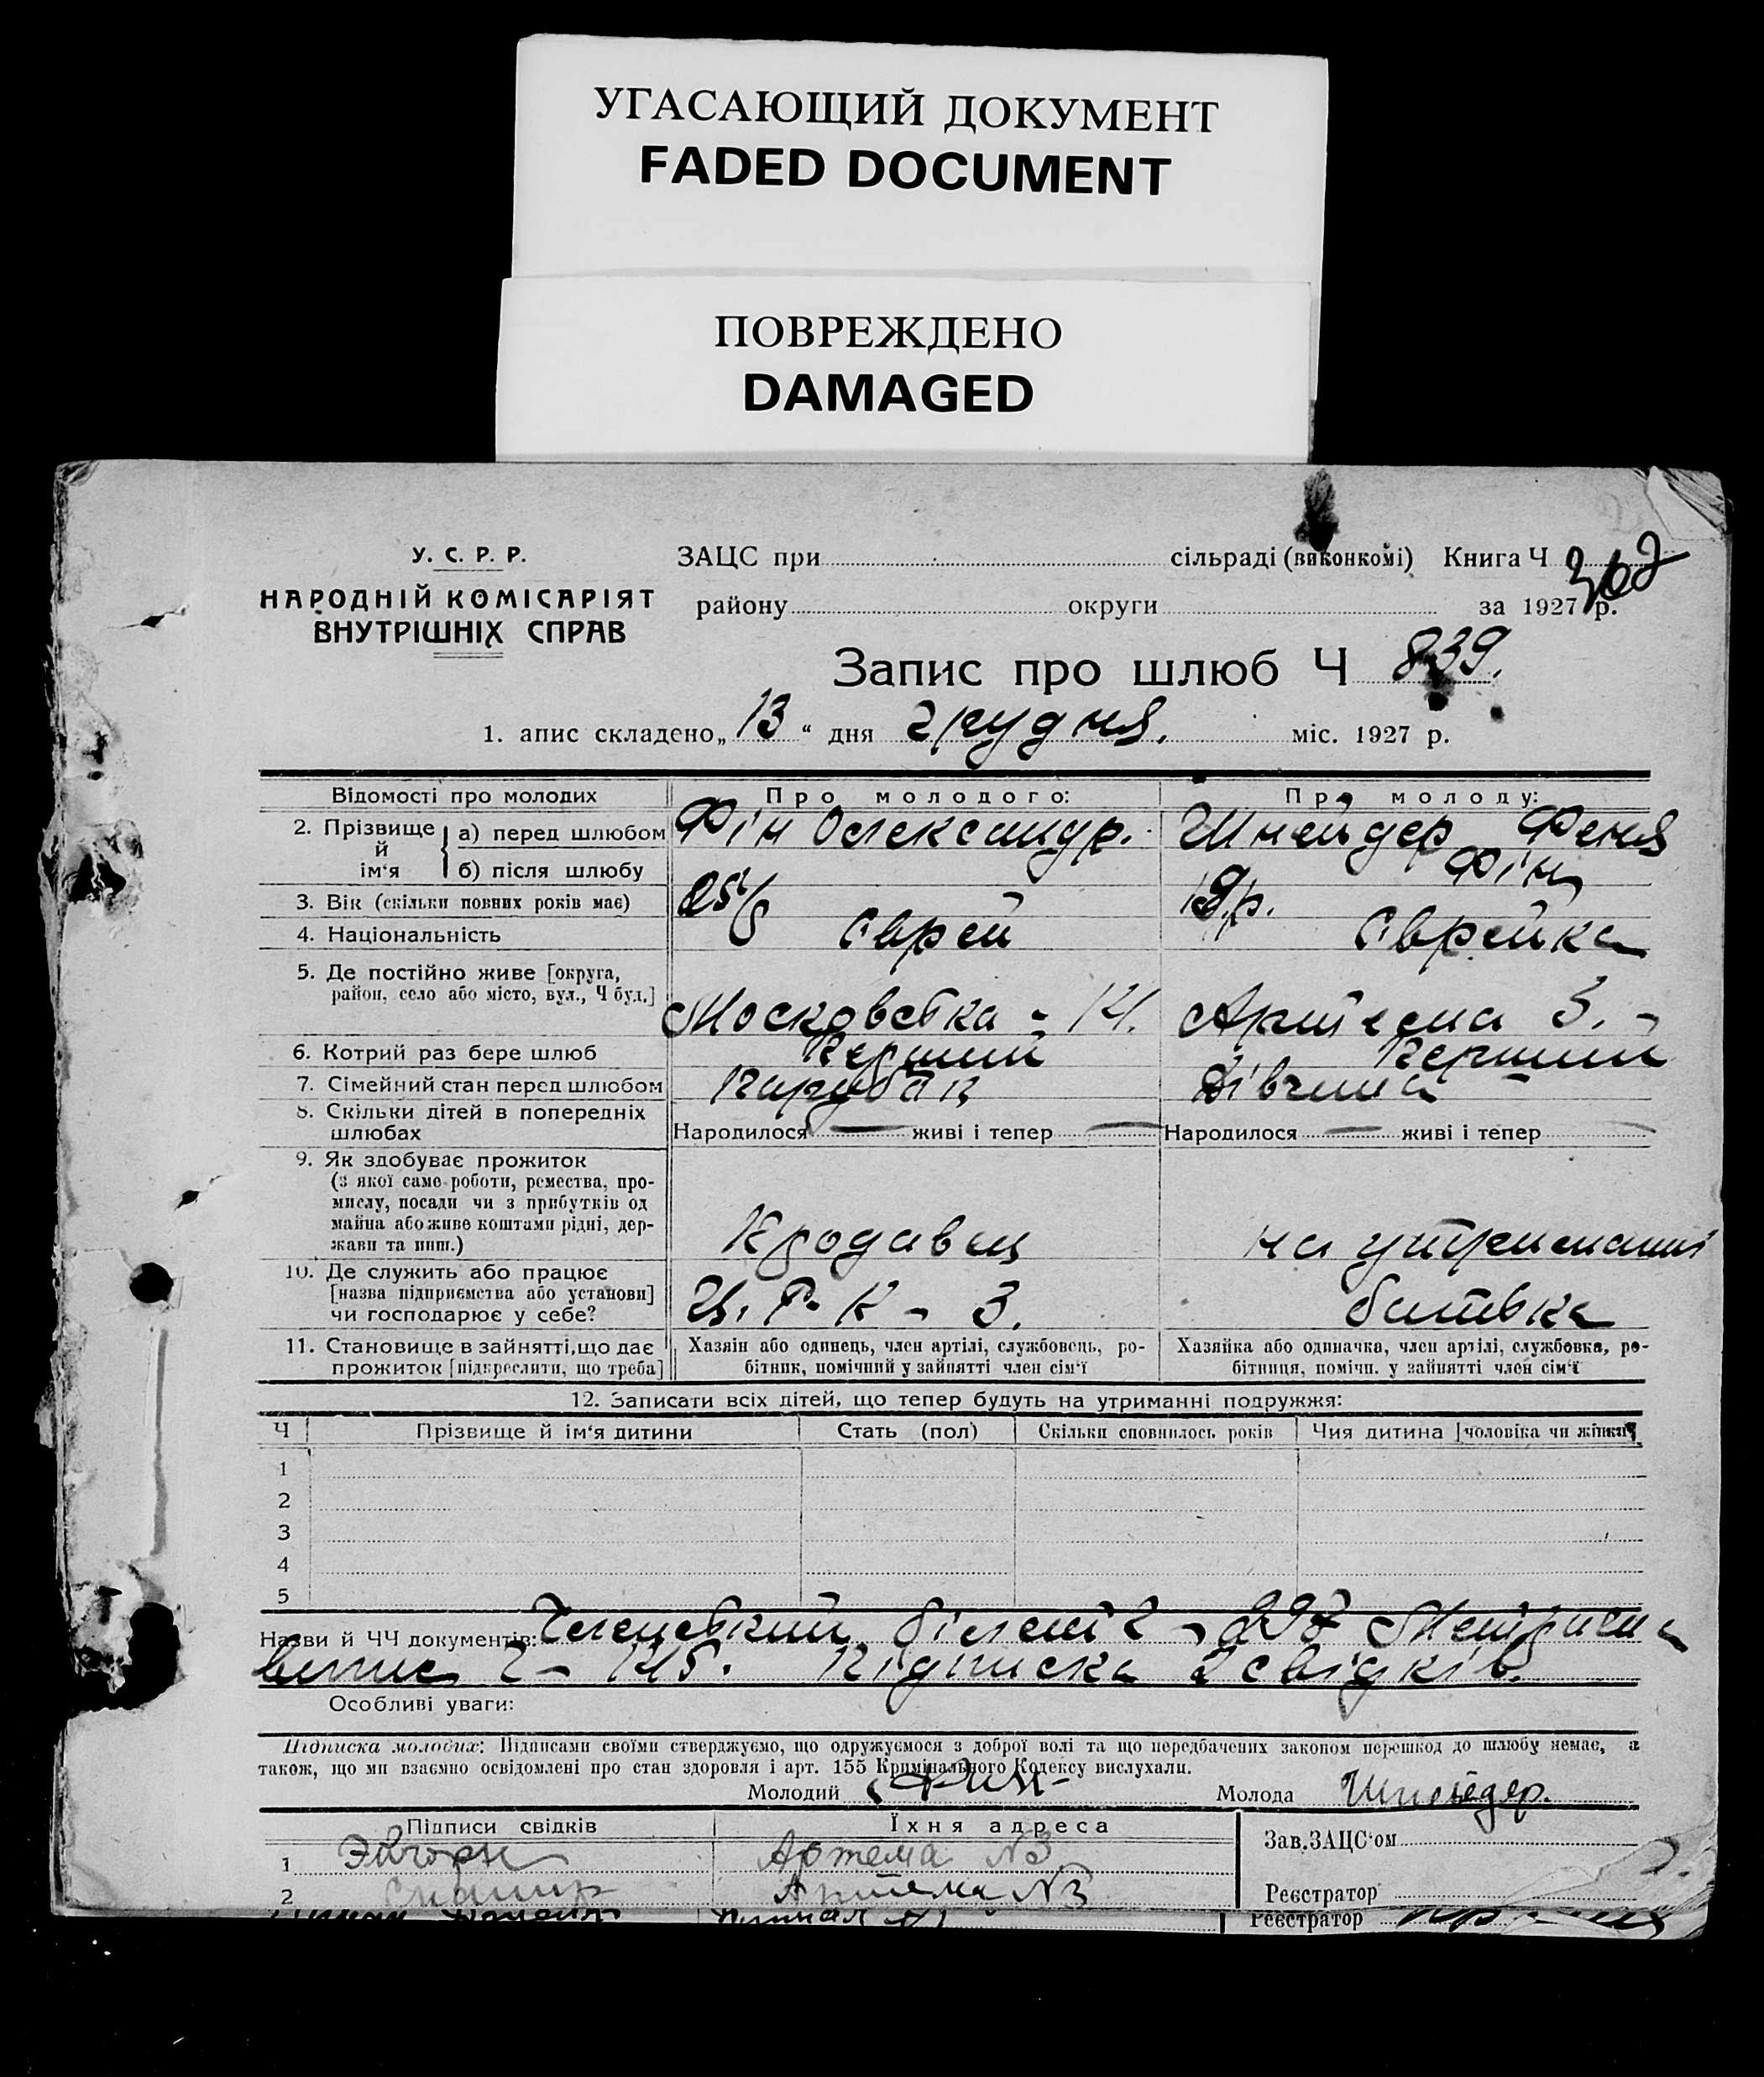 УГАСАЮЩИЙ ДОКУМЕНТ
FADED DOCUMENT
ПОВРЕЖДЕНО
DAMAGED
У. С. Р. Р.
НАРОДНІЙ КОМІСАРІЯТ
ВНУТРІШНІХ СПРАВ
ЗАЦС при сільраді (виконкомі) Книга Ч
району округи за 1927 р.
Запис про шлюб Ч 839.
1. апис складено „13“ дня грудня. міс. 1927 р.
Відомості про молодих Про молодого: Про молоду:
2. Прізвище й ім‘я а) перед шлюбом Фін Олександр. Шнейдер Феня
б) після шлюбу Фін
3. Вік (скільки повних років має) 25 19 р.
4. Національність Єврей Єврейка
5. Де постійно живе [округа, район, село або місто, вул., Ч буд.] Московська - 14. Артема 3. -
6. Котрий раз бере шлюб Перший Перший
7. Сімейний стан перед шлюбом Парубок Дівчина
8. Скільки дітей в попередніх шлюбах Народилося — живі і тепер — Народилося — живі і тепер —
9. Як здобуває прожиток
(з якої саме роботи, ремества, про-
мислу, посади чи з прибутків од
майна або живе коштами рідні, дер-
жави та инш.) Продавец на утриманні
10. Де служить або працює
[назва підприємства або установи]
чи господарює у себе? Ц. Р. К - 3. батька
11. Становище в зайнятті, що дає
прожиток [підкреслити, що треба]
Хазяїн або одинець, член артілі, службовець, ро-
бітник, помічний у зайнятті член сім‘ї
Хазяйка або одиначка, член артілі, службовка, ро-
бітниця, помічн. у зайнятті член сім‘ї
12. Записати всіх дітей, що тепер будуть на утриманні подружжя:
Ч Прізвище й ім‘я дитини Стать (пол) Скільки сповнилось років Чия дитина [чоловіка чи жінки]
1
2
3
4
5
Назви й ЧЧ документів: Членський білет Ч - 227 Метрична
випис Ч - 145. Підписка 2 свідків.
Особливі уваги:
Підписка молодих: Підписами своїми стверджуємо, що одружуємося з доброї волі та що передбачених законом перешкод до шлюбу немає, а
також, що ми взаємно освідомлені про стан здоровля і арт. 155 Кримінального Кодексу вислухали.
Молодий Фин Молода Шнейдер.
Підписи свідків Їхня адреса
1 Артема №3
2 Артема №3
Зав. ЗАЦС‘ом
Реєстратор
Реєстратор